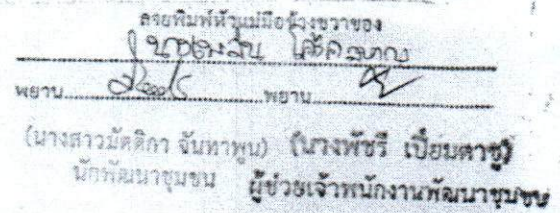 ลายพิมพ์หัวแม่มือข้างขวาของ
พยาน.....................พยาน.....................
(นางสาวมัตติกา จันทาพูน) (นางพัชรี เปี่ยมตาชู)
นักพัฒนาชุมชน ผู้ช่วยเจ้าพนักงานพัฒนาชุมชน